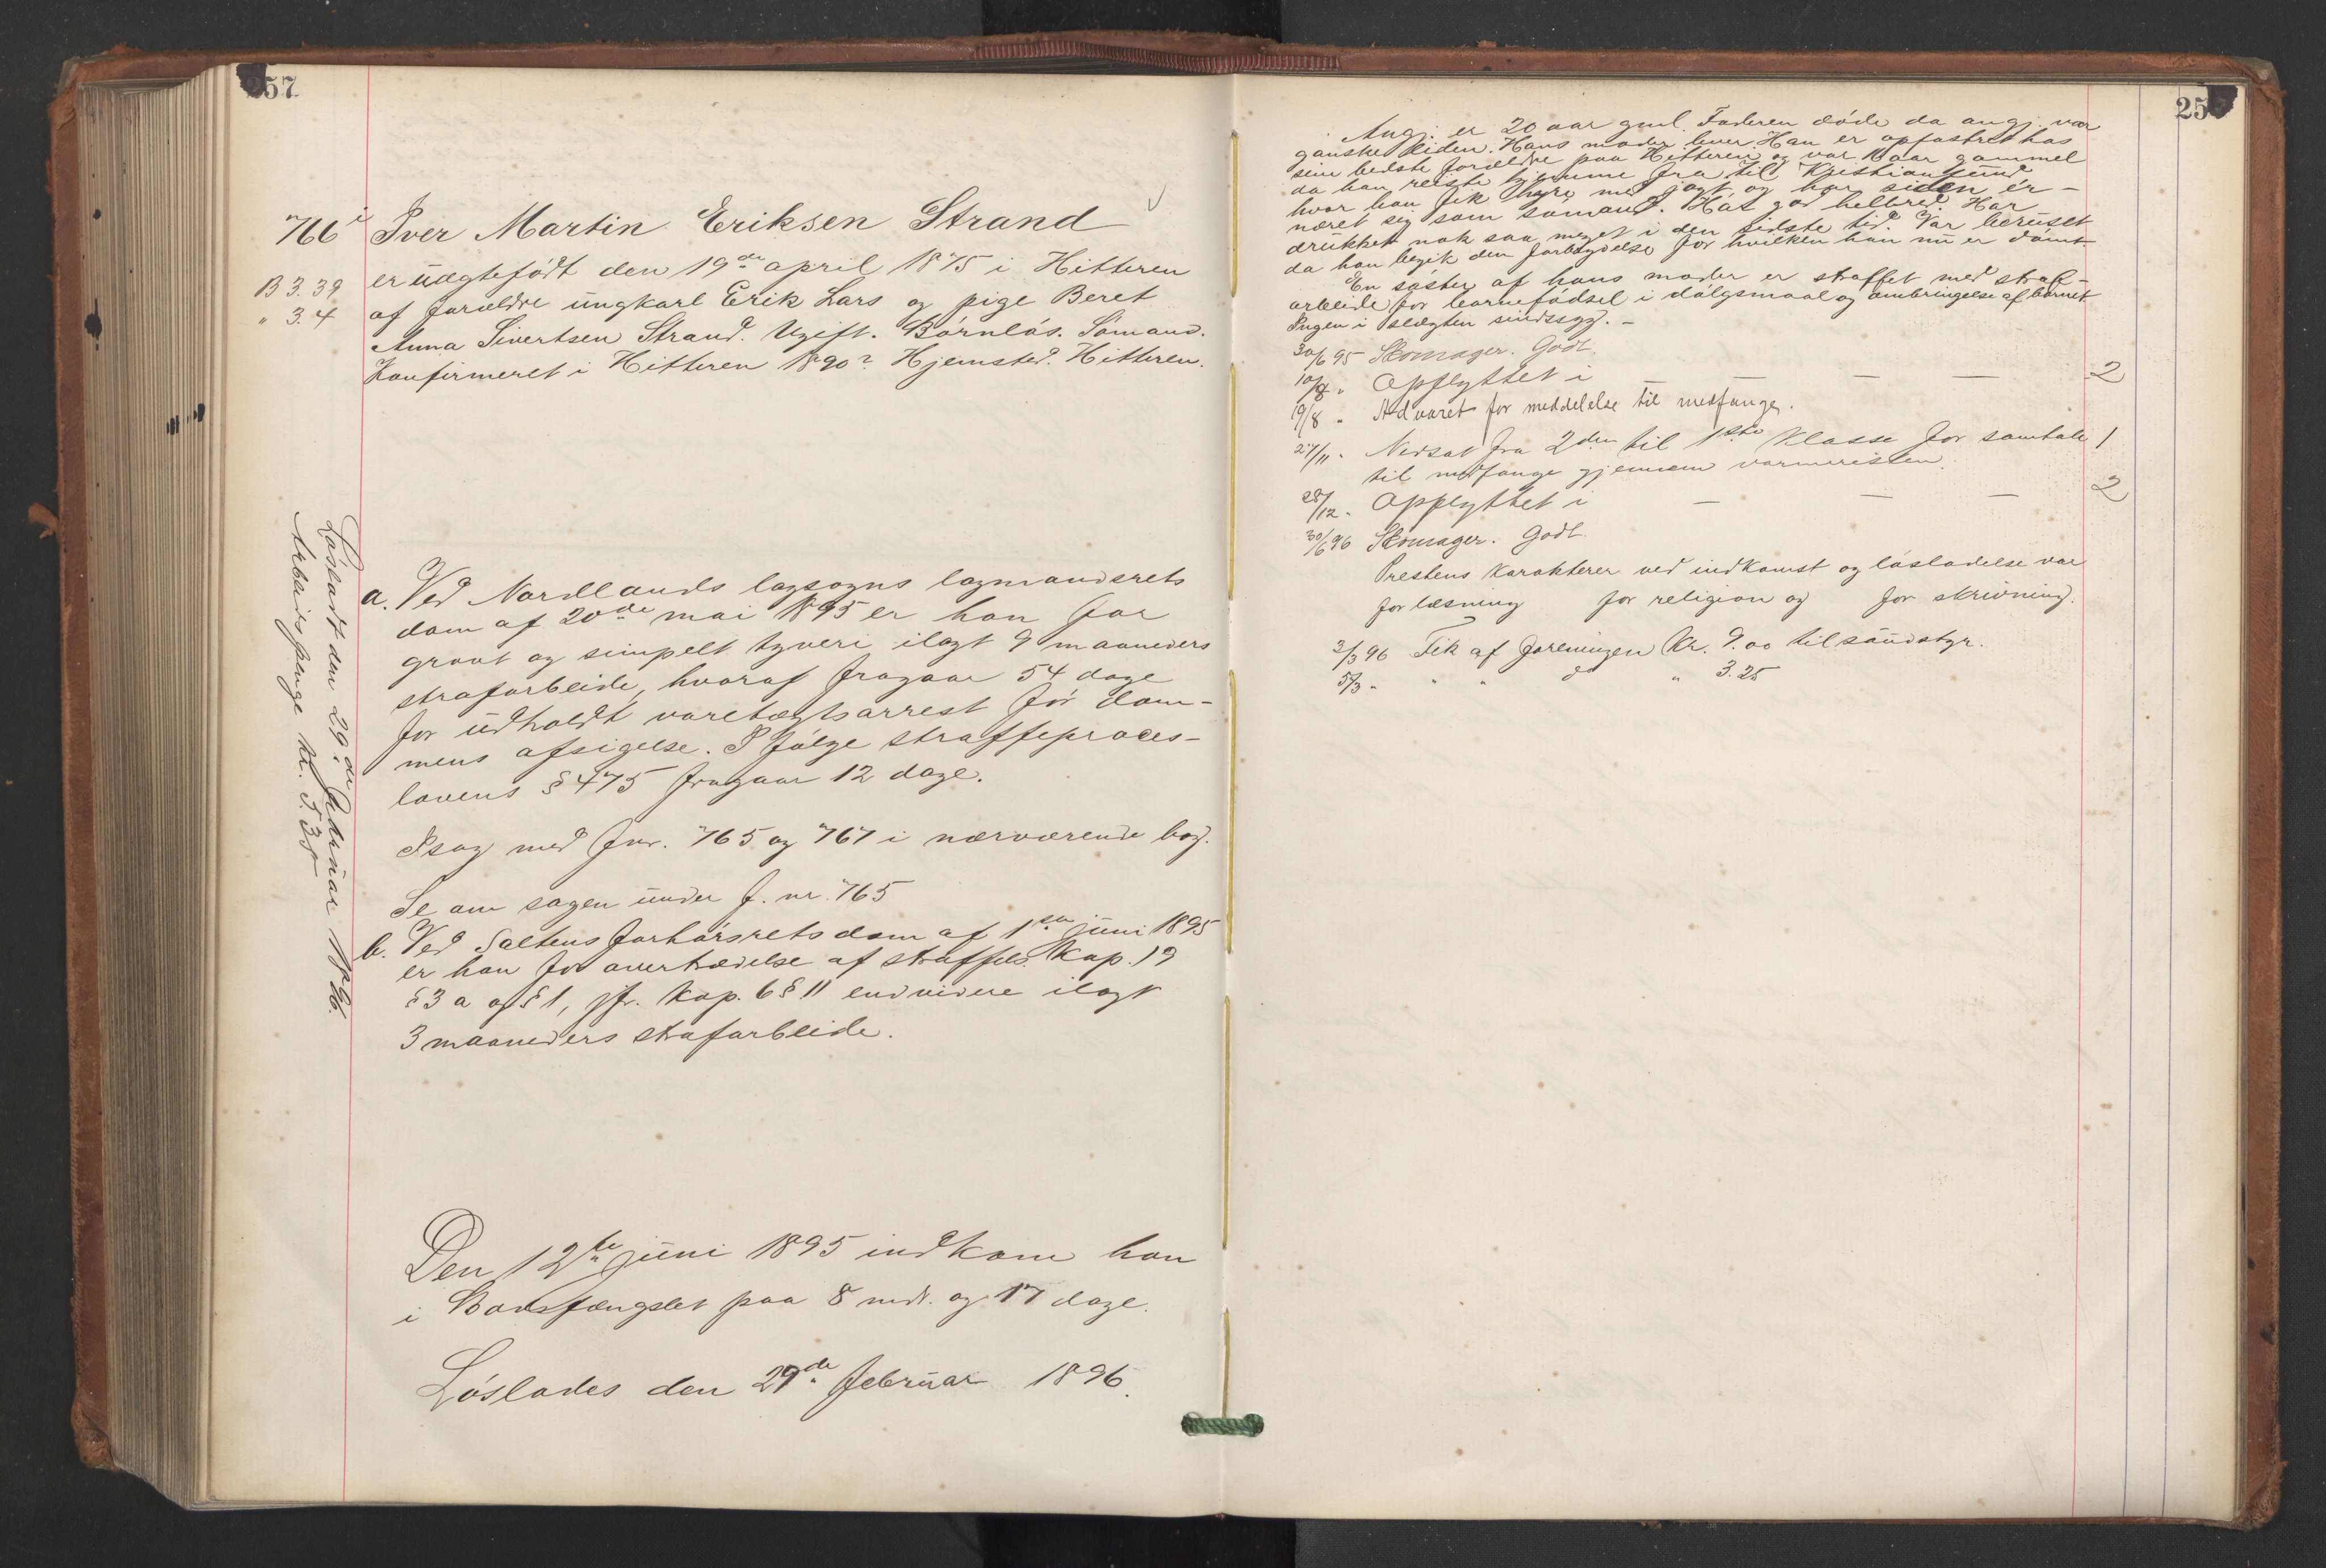 257
766
Iver Martin Eriksen Strand
B 3. 39
" 3. 4
er uægtefödt den 19de april 1875 i Hitteren
af forældre ungkarl Erik Lars og pige Beret
Anna Sivertsen Strand. Ugift. Börnlös. Sömand.
Konfirmeret i Hitteren 1890? Hjemsted. Hitteren.
a. Ved Nordlands lagsogns lagmandsrets
dom af 20de mai 1895 er han for
grovt og simpelt tyveri ilagt 9 maaneders
strafarbeide, hvoraf fragaar 54 dage
for udholdt varetægtsarrest för dom-
mens afsigelse. I fölge straffeproces-
lovens § 475 fragaar 12 dage.
I sag med fnr. 765 og 767 i nærværende bog.
Se om sagen under f. nr. 765
b. Ved Saltens forhörsrets dom af 1ste juni 1895
er han for overtrædelse af straffels. kap. 19
§ 3 a og § 1, jfr. kap. 6 § 11 endvidere ilagt
3 maaneders strafarbeide.
Den 12te juni 1895 indkom han
i Bodsfængslet paa 8 mdr. og 17 dage.
Löslades den 29de februar 1896.
Lösladt den 29de februar 1896.
Arbeidspenge kr. 5.35
25
Angj. er 20 aar gml. Faderen döde da angj. var
ganske liden. Hans moder lever. Han er opfostret hos
sine bedste forældre paa Hitteren og var aar gammel
da han reiste hjemme fra til Kristiansund
hvor han fik hyre med jagt og har siden er-
næret sig som sömand. Hat god helbred. Har
drukket nok saa meget i den sidste tid. Var beruset
da han begik den forbrydelse for hvilken han nu er dömt.
En söster af hans moder er straffet med straf-
arbeide for barnefödsel i dölgsmaal og ombringelse af barnet
Ingen i slægten sindssyg. -
30/6 95 Skomager. Godt.
10/8 " Opflyttet i — — — — 2
19/8 " Advaret for meddelelse til medfange.
27/11 " Nedsat fra 2den til 1ste klasse for samtale 1
til medfange gjennem varmeristen.
28/12 " Opflyttet i — — — 2
30/6 96 Skomager. Godt
Prestens karakterer ved indkomst og lösladelse var
for læsning for religion og for skrivning.
2/3 96 Fik af foreningen Kr. 9.00 til söudstyr.
5/3 " " " do " 3.25